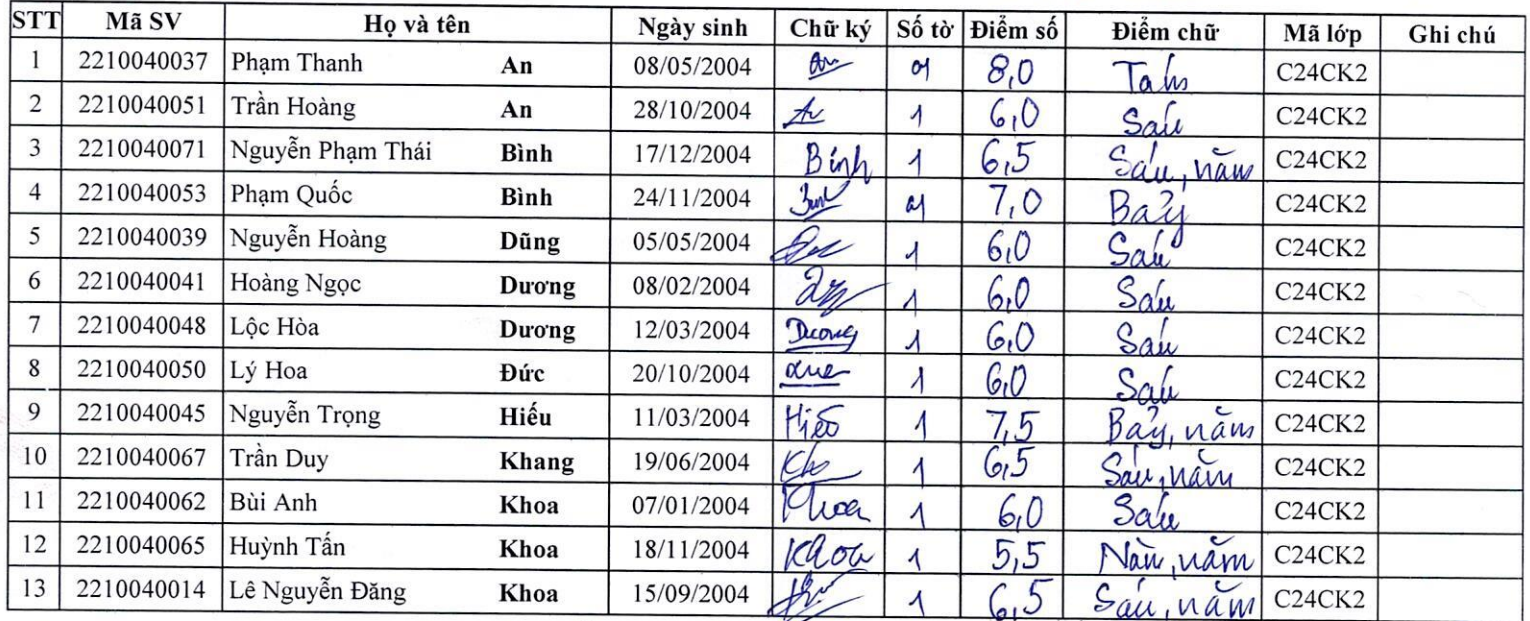 STT Mã SV Họ và tên Ngày sinh Chữ ký Số tờ Điểm số Điểm chữ Mã lớp Ghi chú
1 2210040037 Phạm Thanh An 08/05/2004 An 8,0 Tám C24CK2
2 2210040051 Trần Hoàng An 28/10/2004 An 1 6,0 Sáu C24CK2
3 2210040071 Nguyễn Phạm Thái Bình 17/12/2004 Bình 1 6,5 Sáu, năm C24CK2
4 2210040053 Phạm Quốc Bình 24/11/2004 7,0 Bảy C24CK2
5 2210040039 Nguyễn Hoàng Dũng 05/05/2004 1 6,0 Sáu C24CK2
6 2210040041 Hoàng Ngọc Dương 08/02/2004 1 6,0 Sáu C24CK2
7 2210040048 Lộc Hòa Dương 12/03/2004 Dương 1 6,0 Sáu C24CK2
8 2210040050 Lý Hoa Đức 20/10/2004 1 6,0 Sáu C24CK2
9 2210040045 Nguyễn Trọng Hiếu 11/03/2004 Hiếu 1 7,5 Bảy, năm C24CK2
10 2210040067 Trần Duy Khang 19/06/2004 1 6,5 Sáu, năm C24CK2
11 2210040062 Bùi Anh Khoa 07/01/2004 Khoa 1 6,0 Sáu C24CK2
12 2210040065 Huỳnh Tấn Khoa 18/11/2004 Khoa 1 5,5 Năm, năm C24CK2
13 2210040014 Lê Nguyễn Đăng Khoa 15/09/2004 1 6,5 Sáu, năm C24CK2